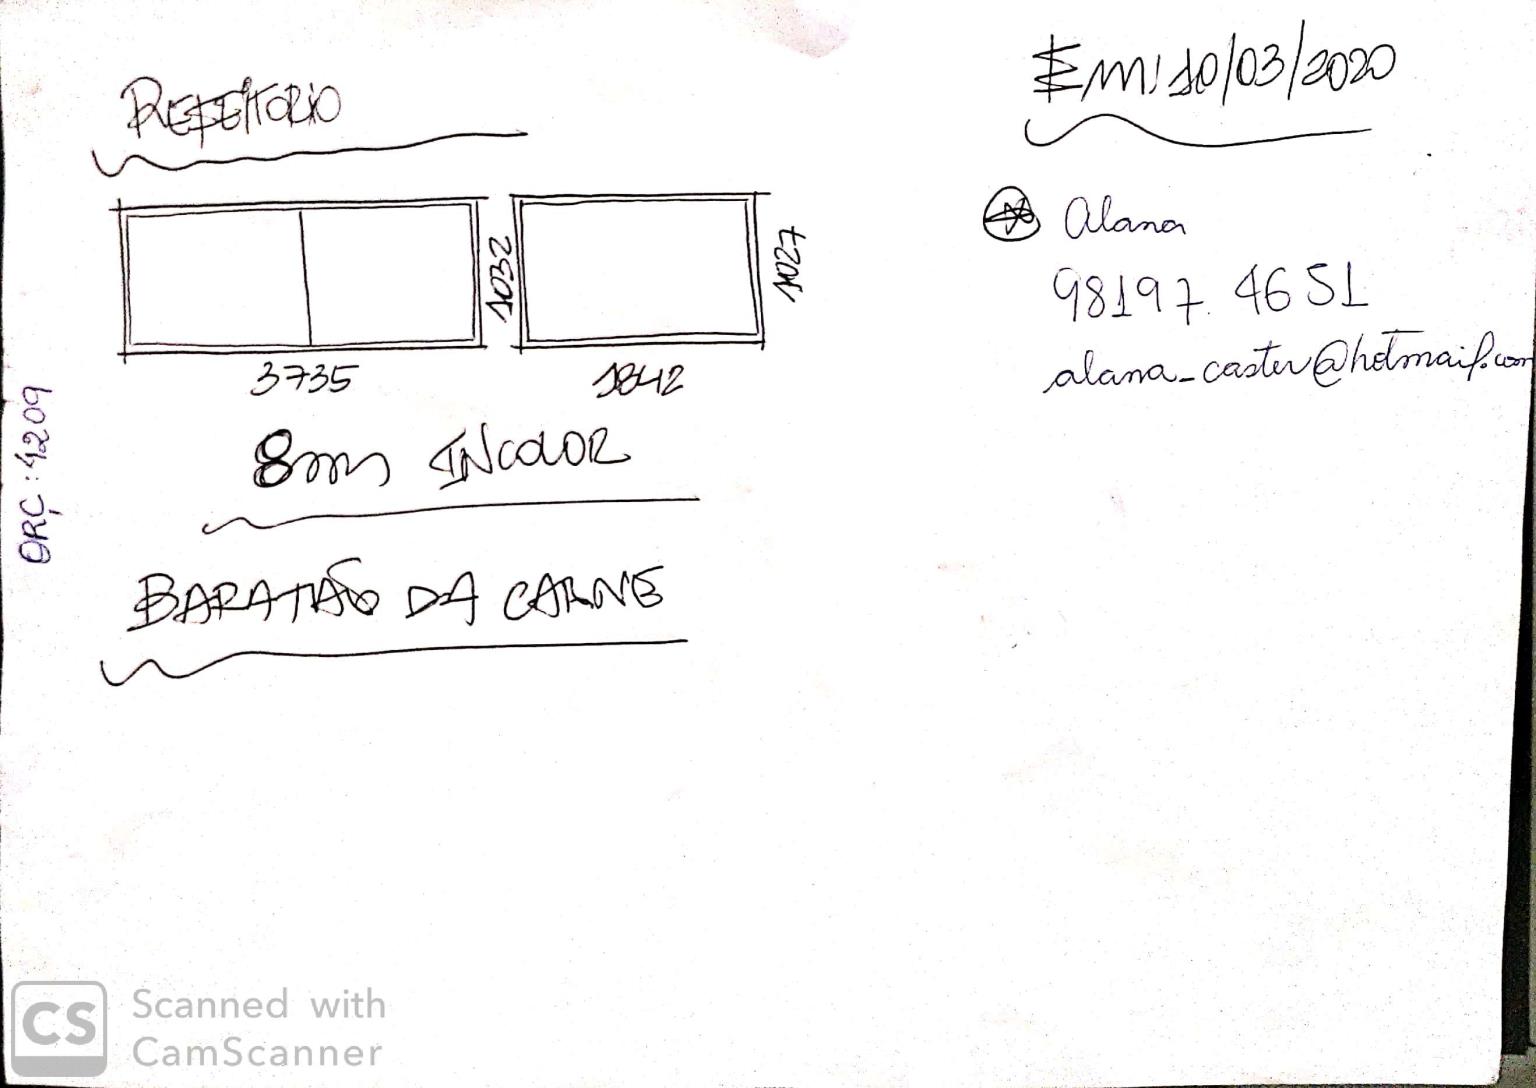 REFEITORIO
Em: 10/03/2020
Alana
98197.4651
alana_caster@hotmail.com
1032
1027
3735
1842
8mm INCOLOR
ORÇ: 4209
BARATÃO DA CARNE
CS
Scanned with
CamScanner